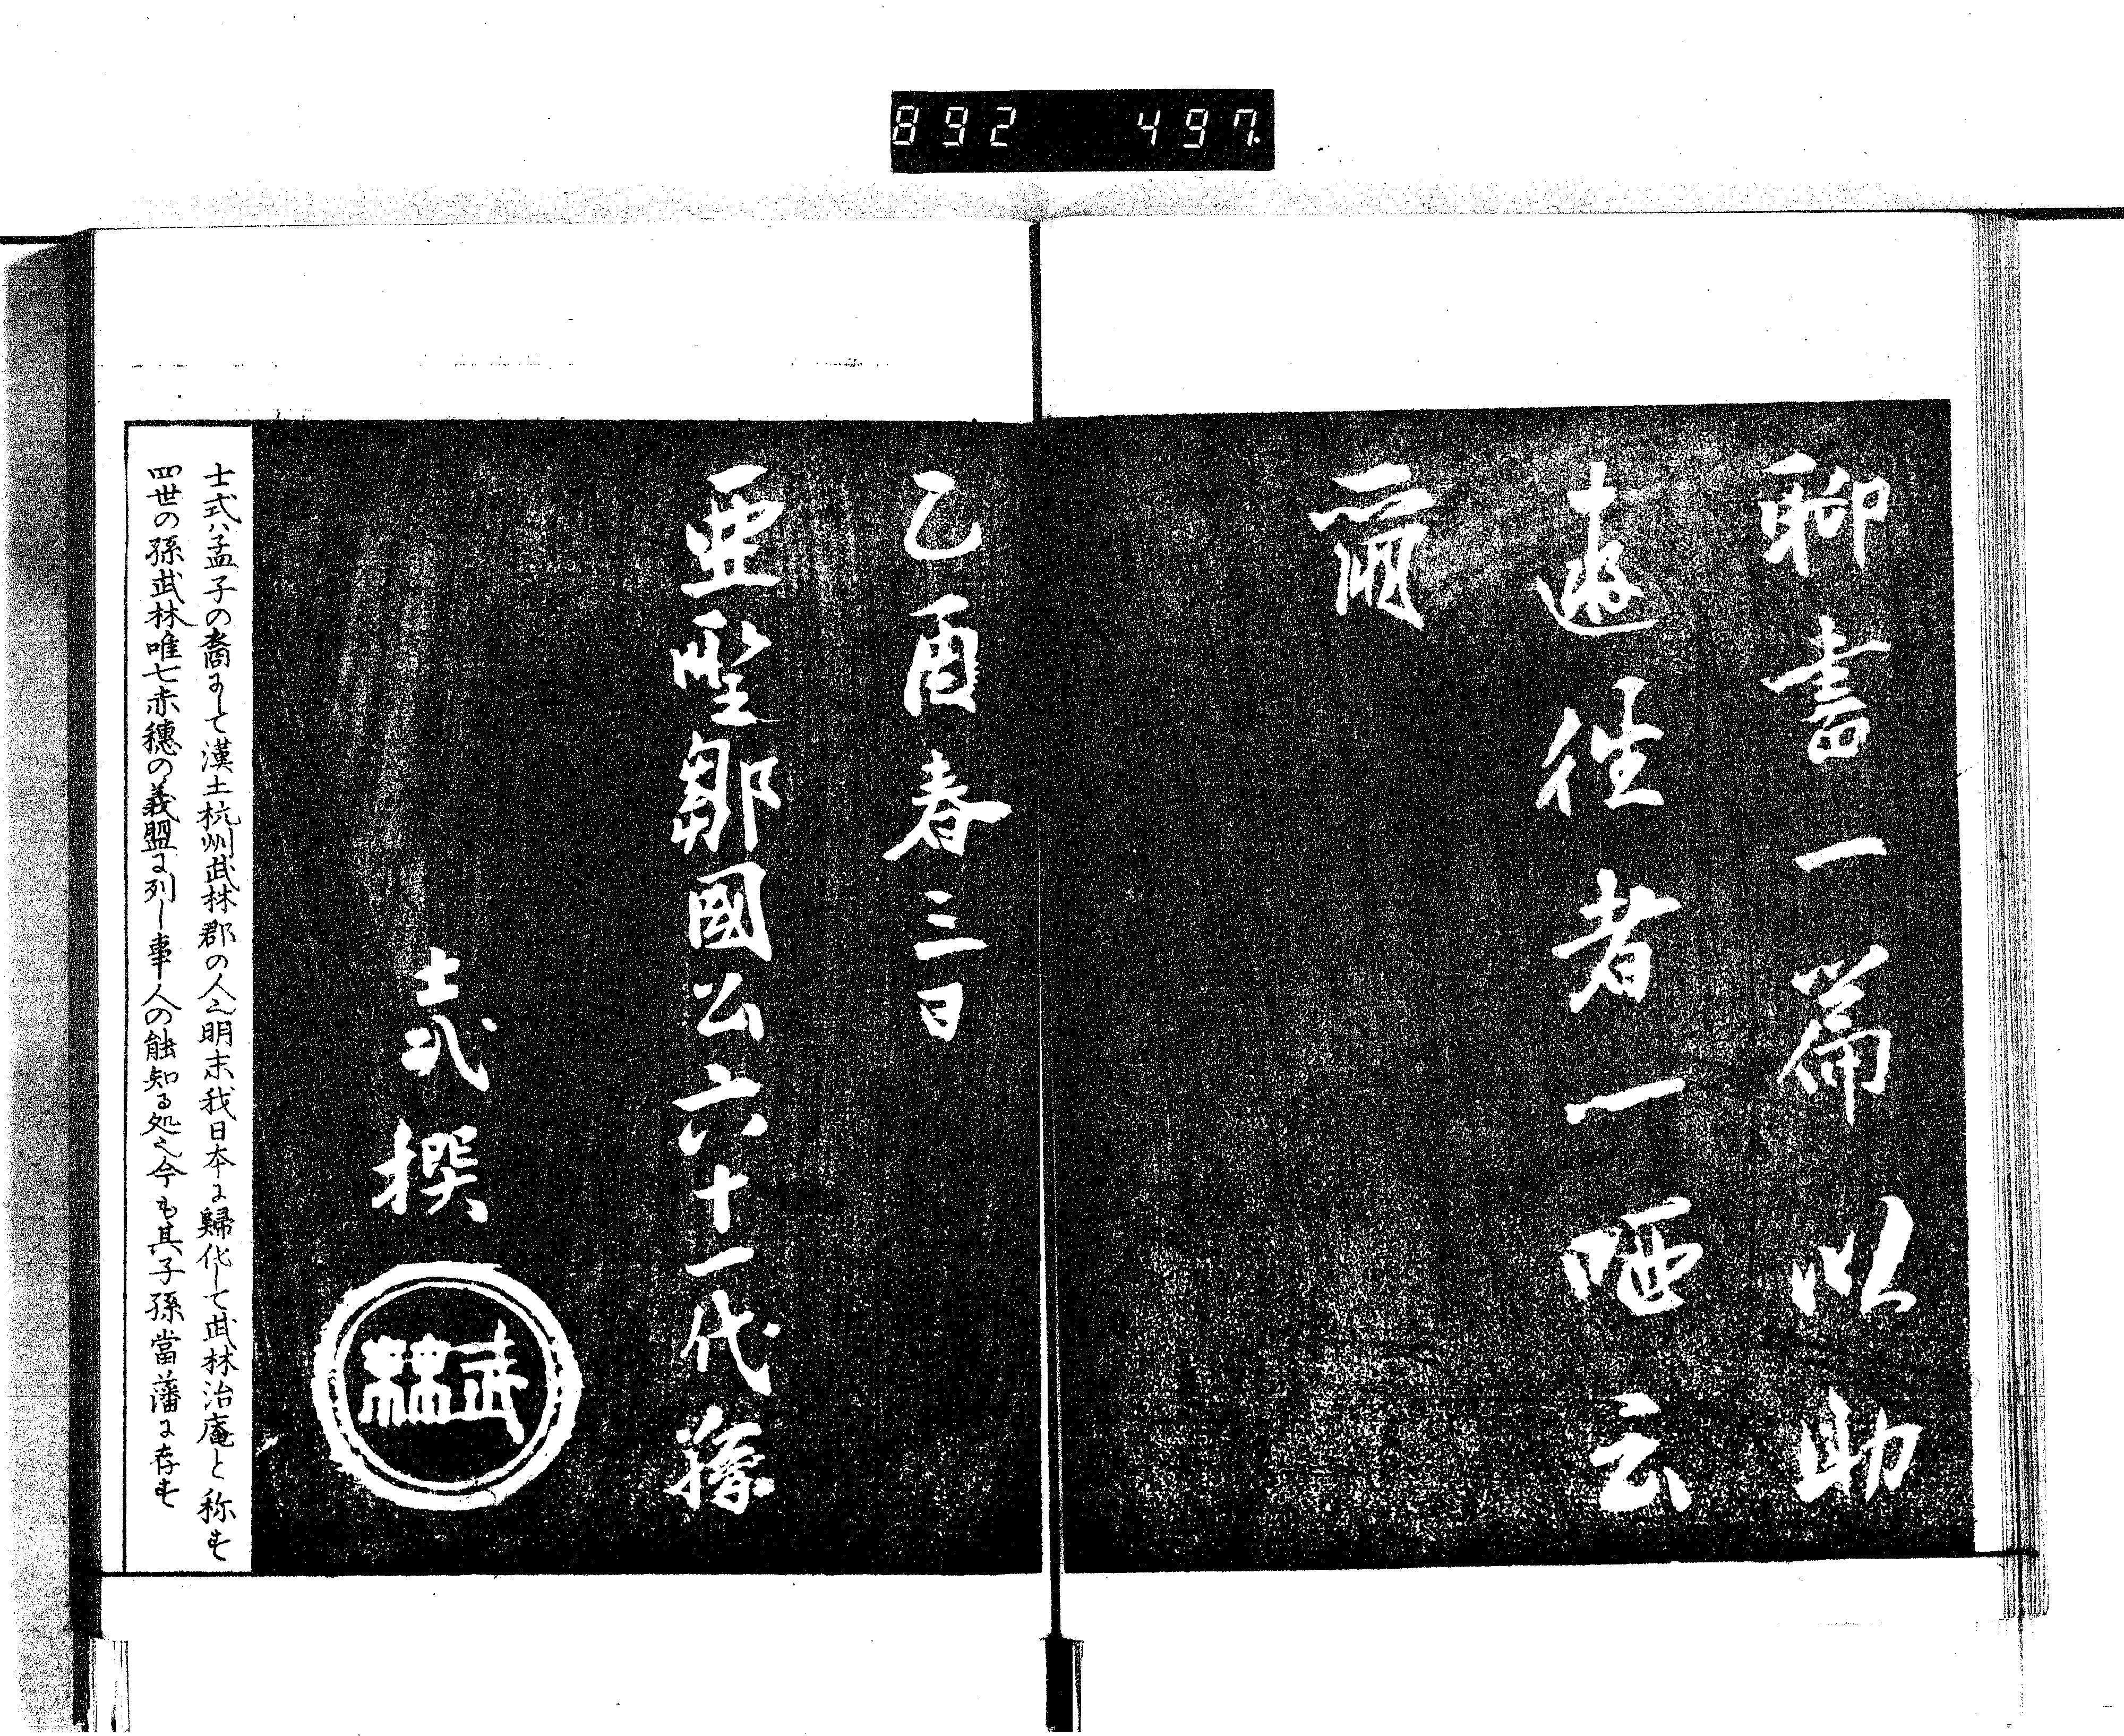 892 497
聊書一篇以助
遊徃者一哂云
爾
乙酉春三日
亜聖鄒國公六十一代孫
士式撰
武林
士式ハ孟子の裔にして漢土杭州武林郡の人也明末我日本に歸化して武林治庵と称す
四世の孫武林唯七赤穗の義盟に列し事人の能知る処也今も其子孫當藩に存す